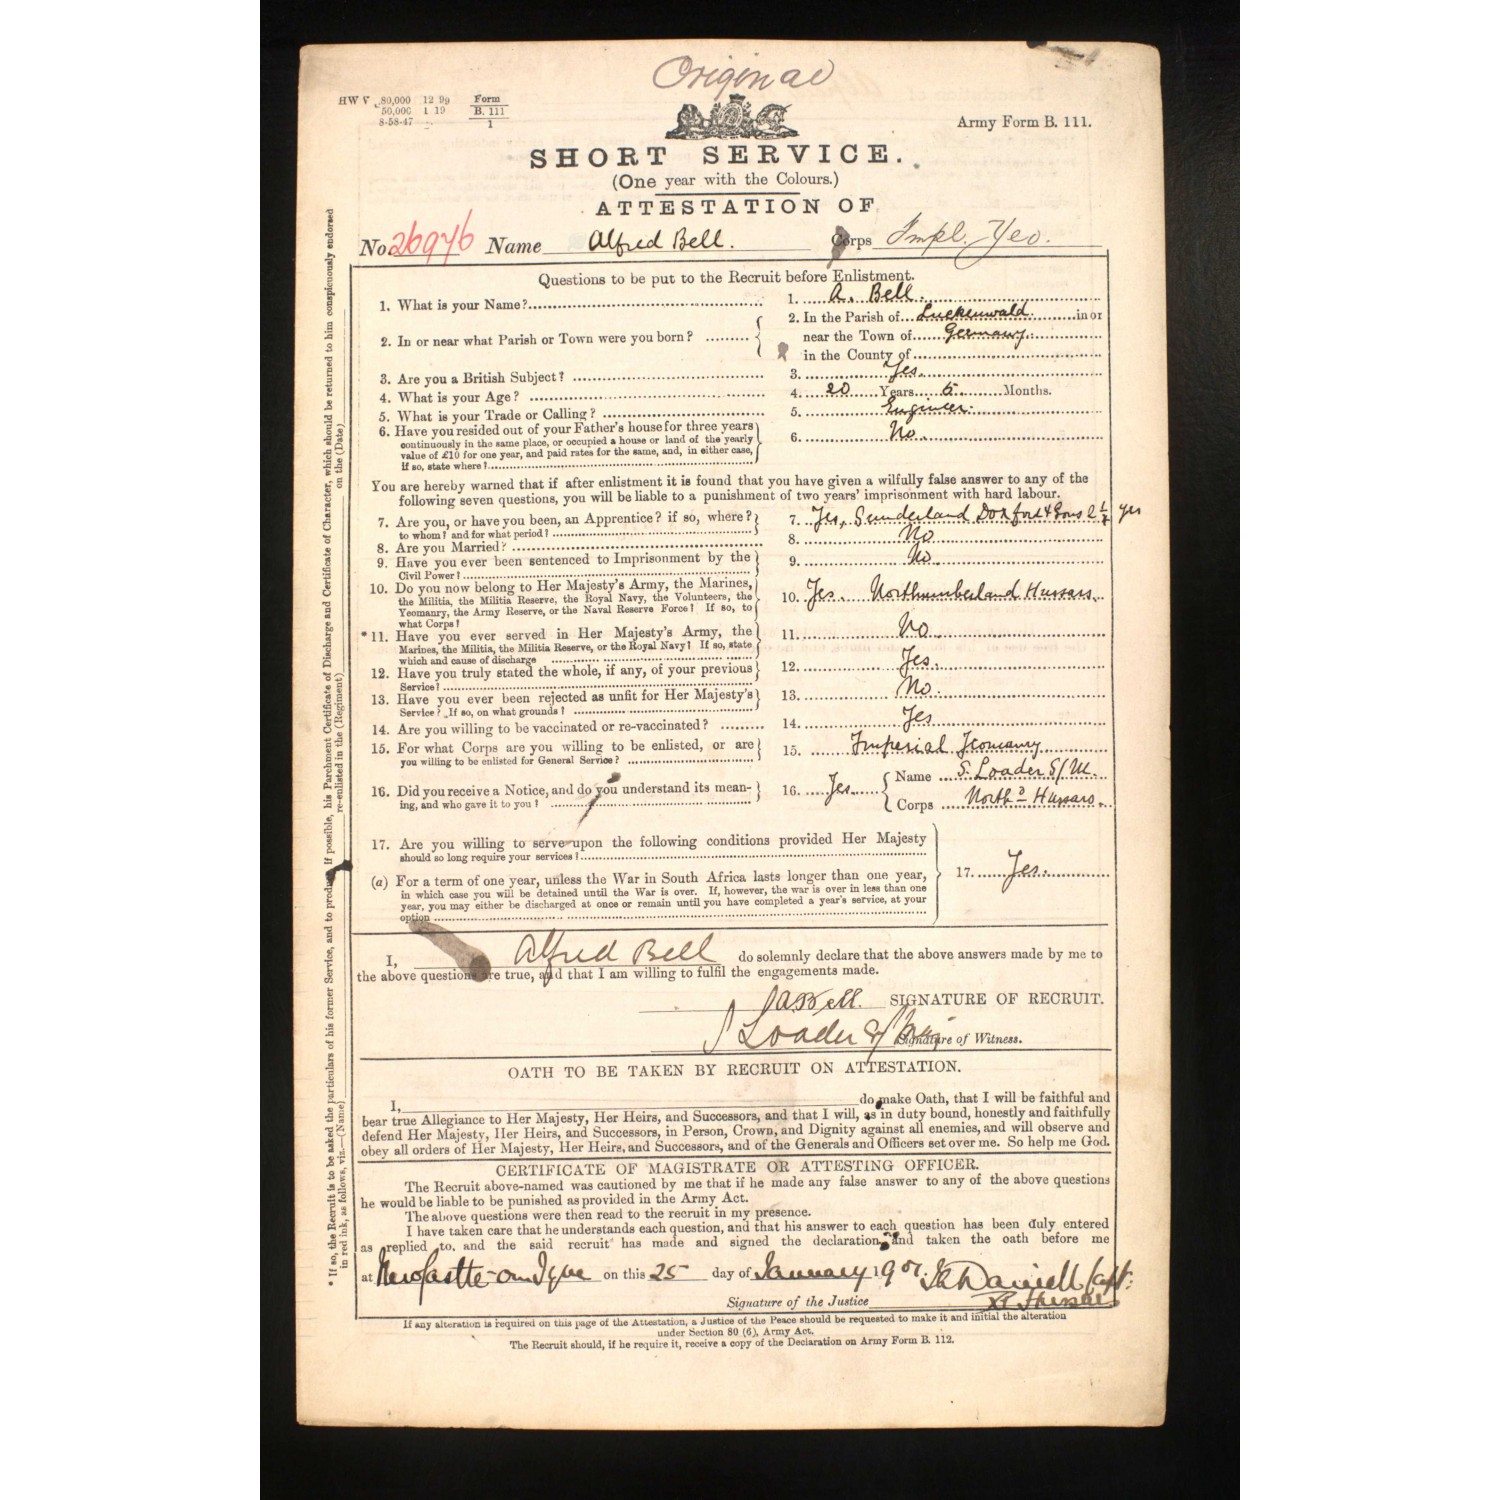 Original
HW V 80,000 12 99 Form
50,000 1 19 B. 111
8-58-47 1
Army Form B. 111.
SHORT SERVICE.
(One year with the Colours.)
ATTESTATION OF
No. 26976 Name Alfred Bell. Corps Impl. Yeo.
Questions to be put to the Recruit before Enlistment.
1. What is your Name? 1. A. Bell.
2. In or near what Parish or Town were you born? 2. In the Parish of Luckenwald in or
near the Town of Germany.
in the County of
3. Are you a British Subject? 3. Yes.
4. What is your Age? 4. 20 Years 5 Months.
5. What is your Trade or Calling? 5. Engineer.
6. Have you resided out of your Father's house for three years 6. No.
continuously in the same place, or occupied a house or land of the yearly
value of £10 for one year, and paid rates for the same, and, in either case,
if so, state where?
You are hereby warned that if after enlistment it is found that you have given a wilfully false answer to any of the
following seven questions, you will be liable to a punishment of two years' imprisonment with hard labour.
7. Are you, or have you been, an Apprentice? if so, where? 7. Yes, Sunderland Doxford & Sons 2 ½ yrs
to whom? and for what period?
8. Are you Married? 8. No
9. Have you ever been sentenced to Imprisonment by the 9. No.
Civil Power?
10. Do you now belong to Her Majesty's Army, the Marines, 10. Yes. Northumberland Hussars.
the Militia, the Militia Reserve, the Royal Navy, the Volunteers, the
Yeomanry, the Army Reserve, or the Naval Reserve Force? If so, to
what Corps?
* 11. Have you ever served in Her Majesty's Army, the 11. No.
Marines, the Militia, the Militia Reserve, or the Royal Navy? If so, state
which and cause of discharge
12. Have you truly stated the whole, if any, of your previous 12. Yes.
Service?
13. Have you ever been rejected as unfit for Her Majesty's 13. No.
Service? If so, on what grounds?
14. Are you willing to be vaccinated or re-vaccinated? 14. Yes
15. For what Corps are you willing to be enlisted, or are 15. Imperial Yeomanry
you willing to be enlisted for General Service?
16. Did you receive a Notice, and do you understand its mean- 16. Yes. Name S. Loader S/M.
ing, and who gave it to you? Corps North'd Hussars.
17. Are you willing to serve upon the following conditions provided Her Majesty
should so long require your services?
17. Yes.
(a) For a term of one year, unless the War in South Africa lasts longer than one year,
in which case you will be detained until the War is over. If, however, the war is over in less than one
year, you may either be discharged at once or remain until you have completed a year's service, at your
option
I, Alfred Bell do solemnly declare that the above answers made by me to
the above questions are true, and that I am willing to fulfil the engagements made.
A. Bell. SIGNATURE OF RECRUIT.
S Loader Signature of Witness.
OATH TO BE TAKEN BY RECRUIT ON ATTESTATION.
I, do make Oath, that I will be faithful and
bear true Allegiance to Her Majesty, Her Heirs, and Successors, and that I will, as in duty bound, honestly and faithfully
defend Her Majesty, Her Heirs, and Successors, in Person, Crown, and Dignity against all enemies, and will observe and
obey all orders of Her Majesty, Her Heirs, and Successors, and of the Generals and Officers set over me. So help me God.
CERTIFICATE OF MAGISTRATE OR ATTESTING OFFICER.
The Recruit above-named was cautioned by me that if he made any false answer to any of the above questions
he would be liable to be punished as provided in the Army Act.
The above questions were then read to the recruit in my presence.
I have taken care that he understands each question, and that his answer to each question has been duly entered
as replied to, and the said recruit has made and signed the declaration and taken the oath before me
at Newcastle-on-Tyne on this 25 day of January 1901. Daniell Capt:
Signature of the Justice Hussars
If any alteration is required on this page of the Attestation, a Justice of the Peace should be requested to make it and initial the alteration
under Section 80 (6), Army Act.
The Recruit should, if he require it, receive a copy of the Declaration on Army Form B. 112.
* If so, the Recruit is to be asked the particulars of his former Service, and to produce, if possible, his Parchment Certificate of Discharge and Certificate of Character, which should be returned to him conspicuously endorsed
in red ink, as follows, viz.—(Name) re-enlisted in the (Regiment) on the (Date)